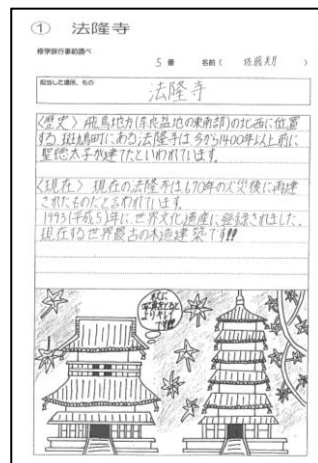 ① 法隆寺
修学旅行事前調べ
5番 名前( 佐藤 )
担当した場所、もの
法隆寺
〈歴史〉 飛鳥地方(奈良盆地の東南部)の北西に位置
する斑鳩町にある法隆寺は今から1400年以上前に
聖徳太子が建てたといわれています。
〈現在〉 現在の法隆寺は670年の火災後に再建
されたものだと言われています。
1993(平成5)年に、世界文化遺産に登録されました。
現存する世界最古の木造建築です!!
秋に
よりキレイ
です!!